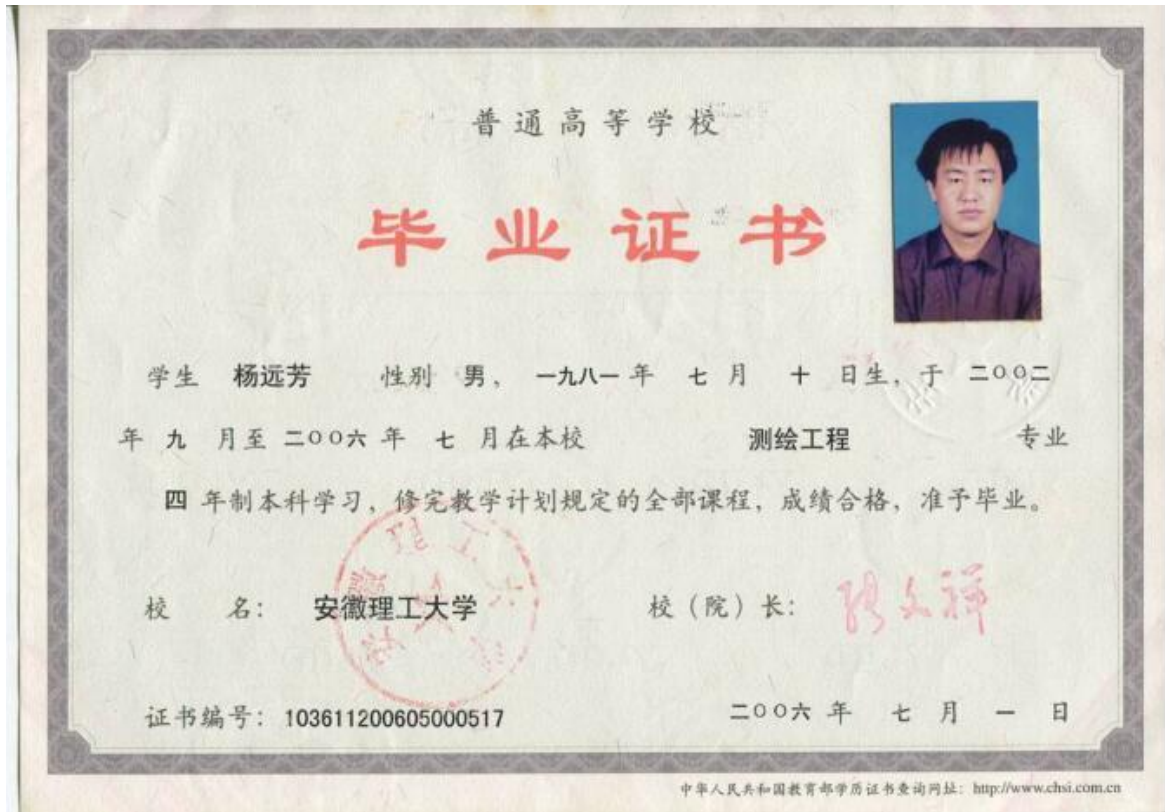 普通高等学校
毕业证书
学生 杨远芳 性别 男，一九八一年 七 月 十 日生，于 二〇〇二
年 九 月至 二〇〇六 年 七 月在本校 测绘工程 专业
四 年制本科学习，修完教学计划规定的全部课程，成绩合格，准予毕业。
校 名： 安徽理工大学 校（院）长： 张文祥
证书编号：103611200605000517 二〇〇六 年 七 月 一 日
中华人民共和国教育部学历证书查询网址：http://www.chsi.com.cn